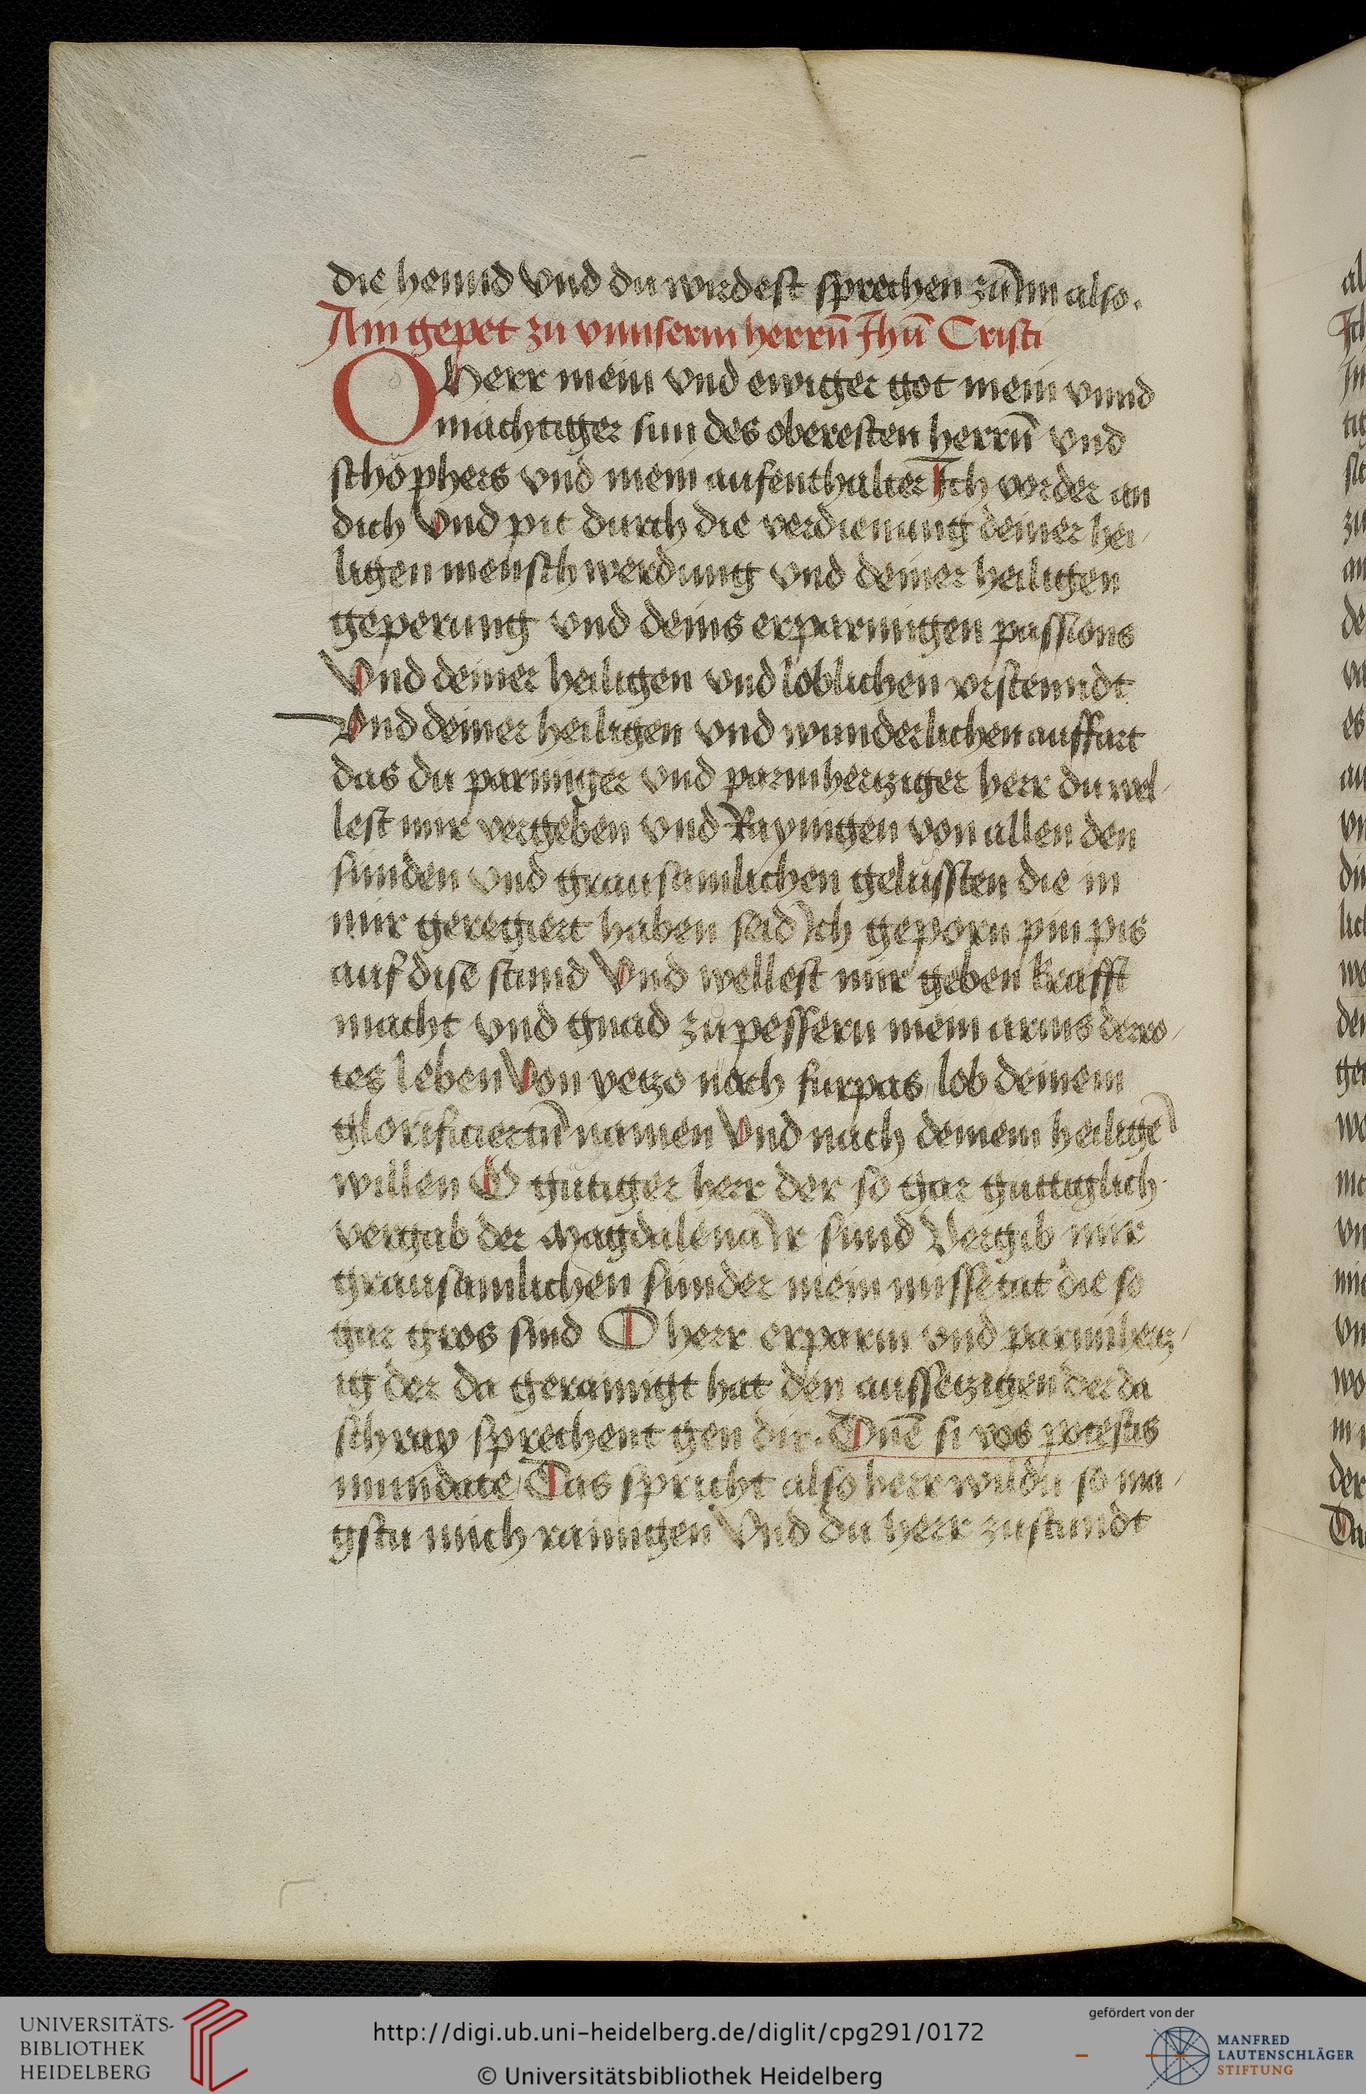 die hennd vnd du wirdest sprechen zu Im also.
Ain gepet zu vnnserm herrn̄ Jhū Cristi
O Herr mein vnd ewiger got mein vnnd
mächtiger sun des oberesten herrn̄ vnd
schöphers vnd mein aufenthalter Ich vorder an
dich Vnd pit durch die verdienung deiner hei-
ligen menschwerdung vnd deiner heiligen
geperung vnd deins erparmigen passions
Vnd deiner heiligen vnd loblichen vrstenndt
Vnd deiner heiligen vnd wunderlichen auffart
das du parmiger vnd parmhertziger herr du wel-
lest mir vergeben vnd Raynigen von allen den
sunden vnd grausamlichen gelüssten die in
mir geregiert haben seid Ich geporn pin pis
auf dise stund Vnd wellest mir geben krafft
macht vnd gnad zu pessern mein arms
tes leben Von yetzo nach fürpas lob deinem
glorificiertn̄ namen Vnd nach deinem heiligē
willen O gütiger herr der so gar güttiglich
vergab der Magdalena Ir sünd Vergib mir
grausamlichen sünder mein missetat die so
gar gros sind O herr erparm vnd parmhertz-
ig der da gerainigt hat den aussetzigen der da
schray sprechent gen dir. Dn̄e si vos potestis
mundate Das spricht also herr wildu so ma-
gstu mich rainigen Vnd du herr zustundt
al
Ich
de
es
vn
lich
we
den
gen
we
vn
mic
vn
wo
der
Da
UNIVERSITÄTS-
BIBLIOTHEK
HEIDELBERG
http://digi.ub.uni-heidelberg.de/diglit/cpg291/0172
© Universitätsbibliothek Heidelberg
gefördert von der
MANFRED
LAUTENSCHLÄGER
STIFTUNG